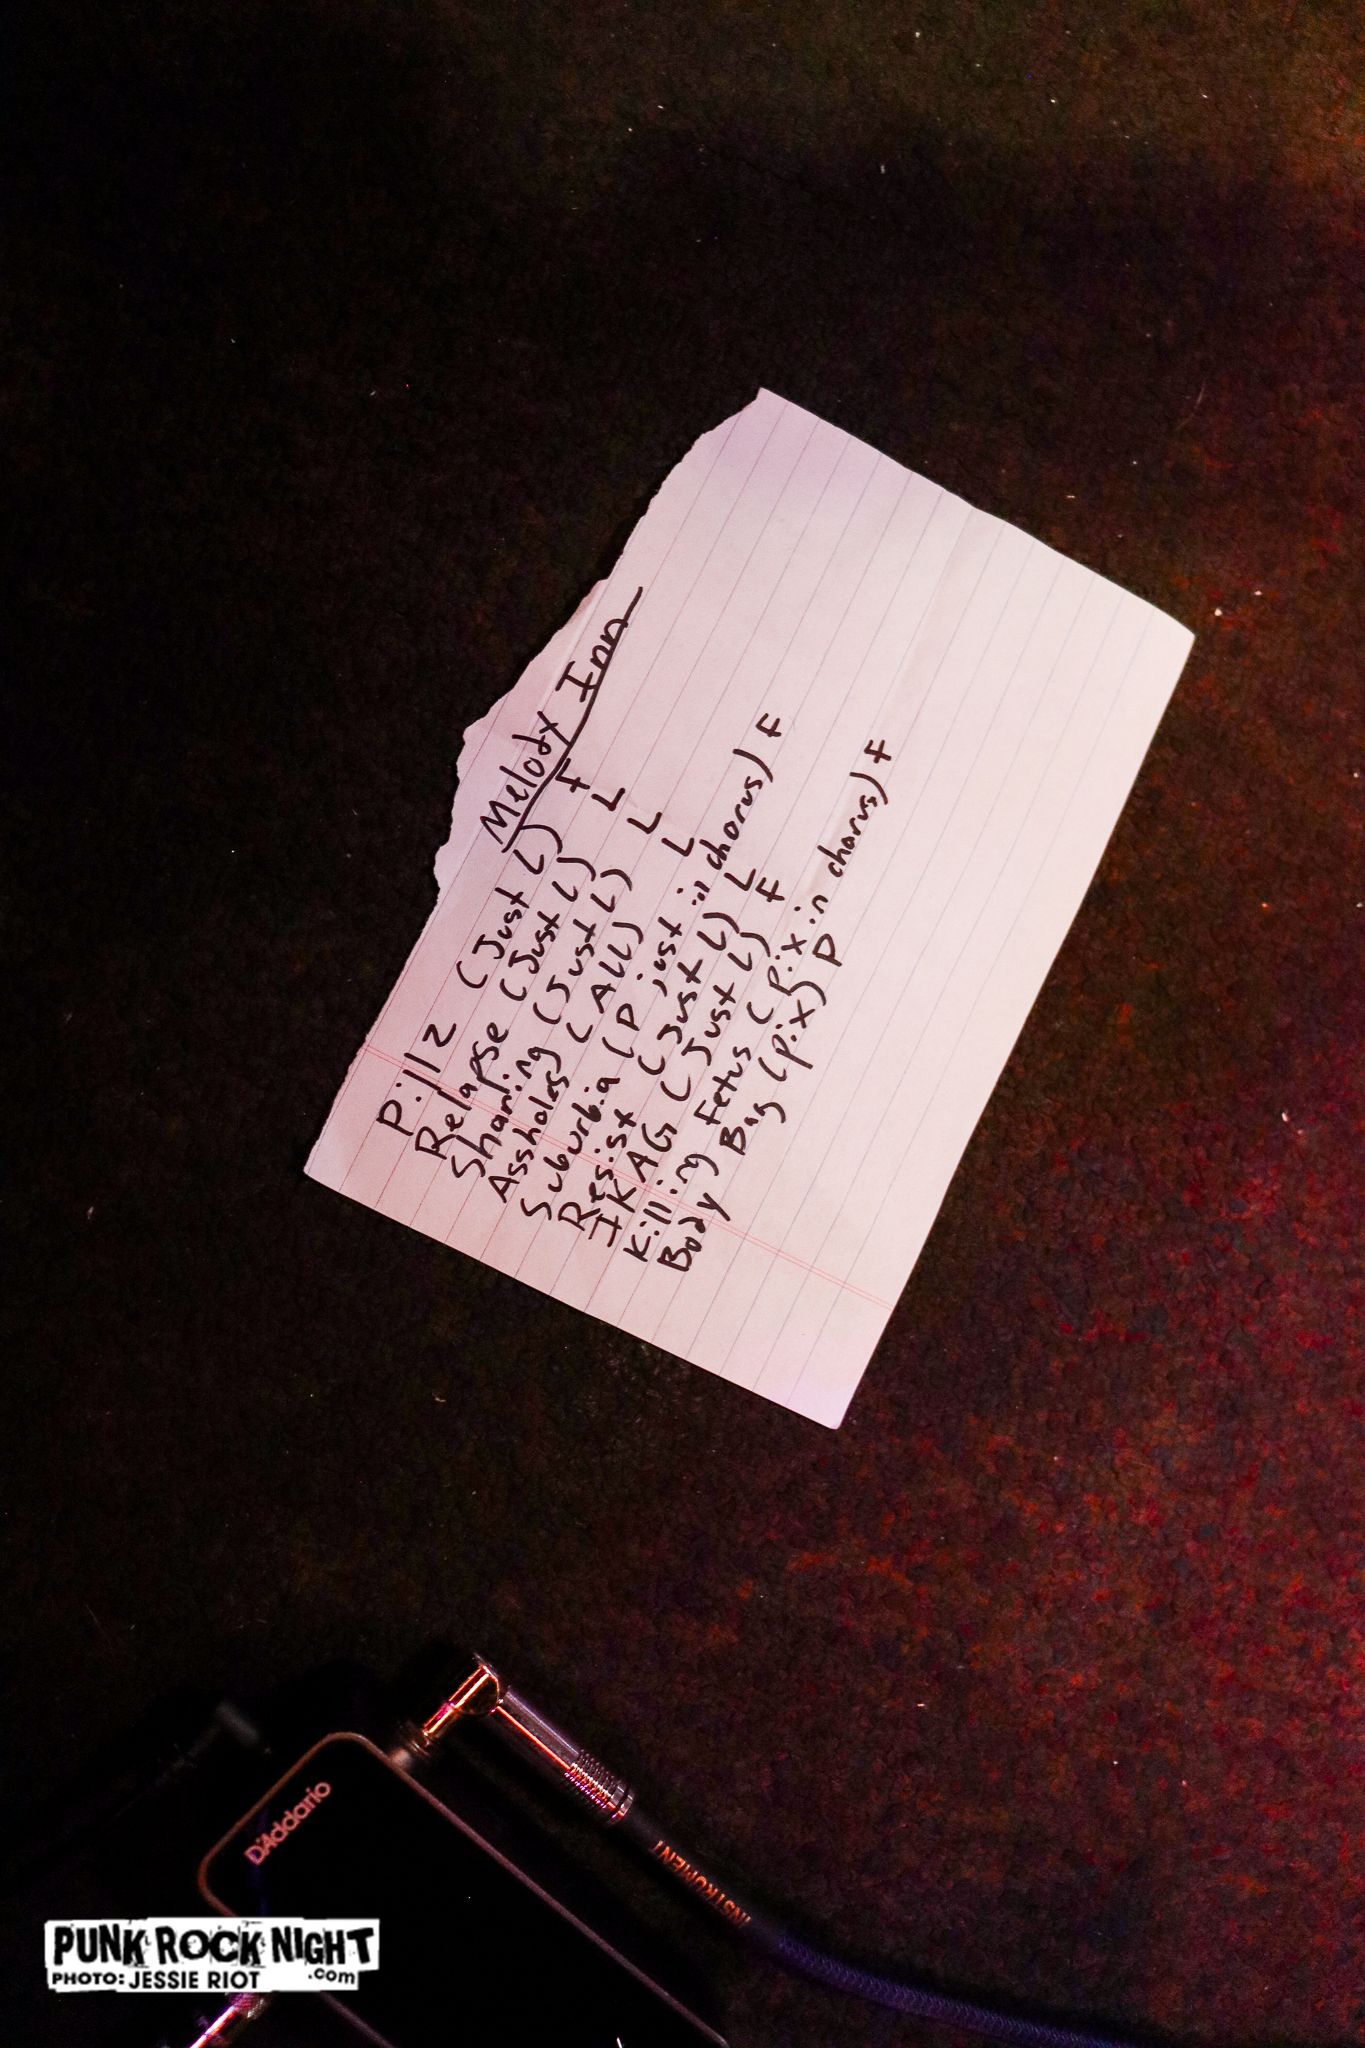 Melody Inn
Pillz (Just L) F
Relapse (Just L) L
Sharing (Just L) L
Assholes (ALL) L
Suburbia (P just in chorus) F
Resist (Just L) L
IKAG (Just L) F
Killing Fetus (Pix in chorus) F
Body Bag (Pix) P
D'Addario
INSTRUMENT
PUNK ROCK NIGHT
PHOTO: JESSIE RIOT .com